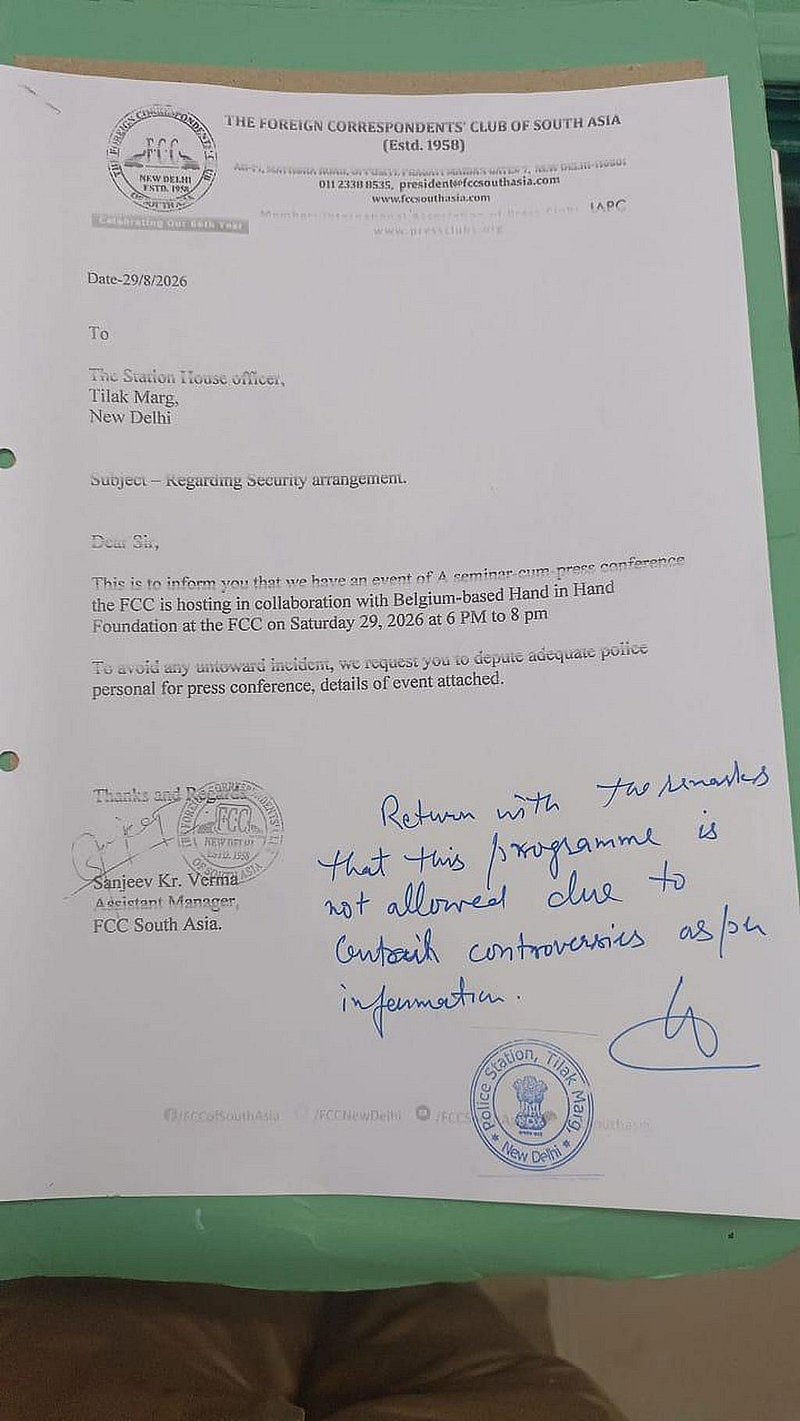 THE FOREIGN CORRESPONDENTS' CLUB OF SOUTH ASIA
(Estd. 1958)
FCC
NEW DELHI
ESTD. 1958
011 2338 8535, president@fccsouthasia.com
www.fccsouthasia.com
IAPC
www.pressclubs.org
Celebrating Our 66th Year
Date-29/8/2026
To
The Station House officer,
Tilak Marg,
New Delhi
Subject – Regarding Security arrangement.
Dear Sir,
This is to inform you that we have an event of A seminar-cum-press conference
the FCC is hosting in collaboration with Belgium-based Hand in Hand
Foundation at the FCC on Saturday 29, 2026 at 6 PM to 8 pm
To avoid any untoward incident, we request you to depute adequate police
personal for press conference, details of event attached.
Thanks and Regards
FCC
NEW DELHI
ESTD. 1958
Sanjeev Kr. Verma
Assistant Manager,
FCC South Asia.
Return with the remarks
that this programme is
not allowed due to
controversies as per
information.
Police Station, Tilak Marg,
New Delhi
/FCCofSouthAsia /FCCNewDelhi